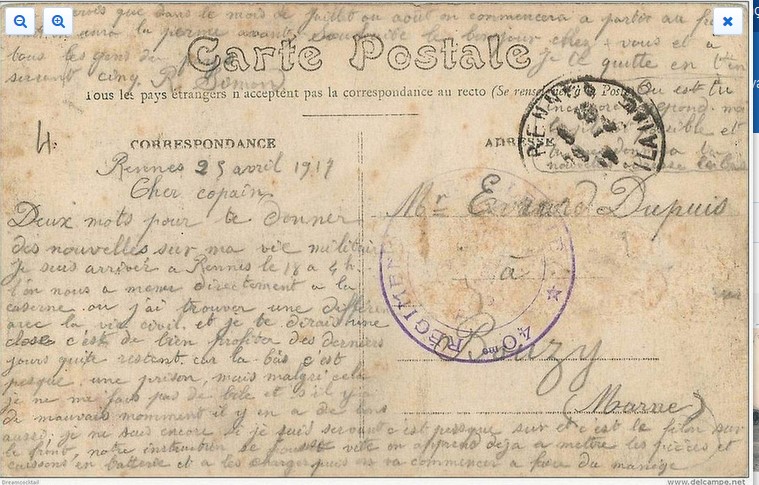 que dans le mois de Juillet ou aout on commencera a partir au
la perme avant. Souhaite le bonjour chez vous et a
tous les gens de
je te quitte en t'en
serrant cinq. R. Simon
Carte Postale
Tous les pays étrangers n'acceptent pas la correspondance au recto (Se renseigner à la Poste)
Ou est tu
incorporé repond moi
possible et
4.
CORRESPONDANCE
ADRESSE
RENNES
Rennes 25 avril 1917
Cher copain
Deux mots pour te donner
des nouvelles sur ma vie militaire
je suis arrivér a Rennes le 18 a 4 h.
l'on nous a mener directement a la
caserne. ou j'ai trouver une différen
avec la vie civil. et je te dirais une
chose c'est de bien profiter des derniers
jours qu'ils restent. car la bis c'est
presque une prison, mais malgrè cela
je ne me fais pas de bile et s'il y a
de mauvais momment il y en a de bons
aussi, je ne sais encore si je suis servant c'est presque sur et c'est le filon sur
le front, notre instruction se pousse vite on apprend déja a mettre les pièces et
caissons en batterie et a les charger puis on va commencer a faire du manège
Mr Evrard Dupuis
à
Bouzy
(Marne)
40me REGIMENT
Dreamoechtel
www.delcampe.net